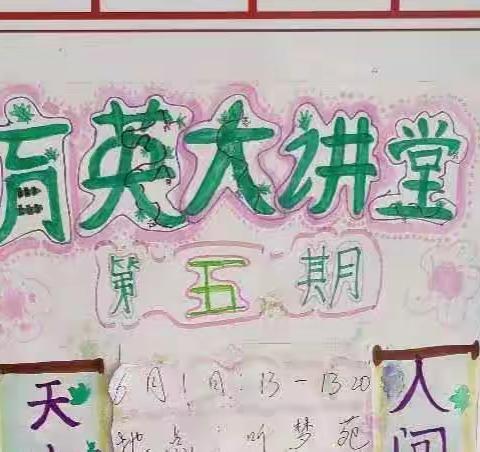 育英大讲堂
第五期
天
6月1日:13-1320
地点:听梦苑
人间